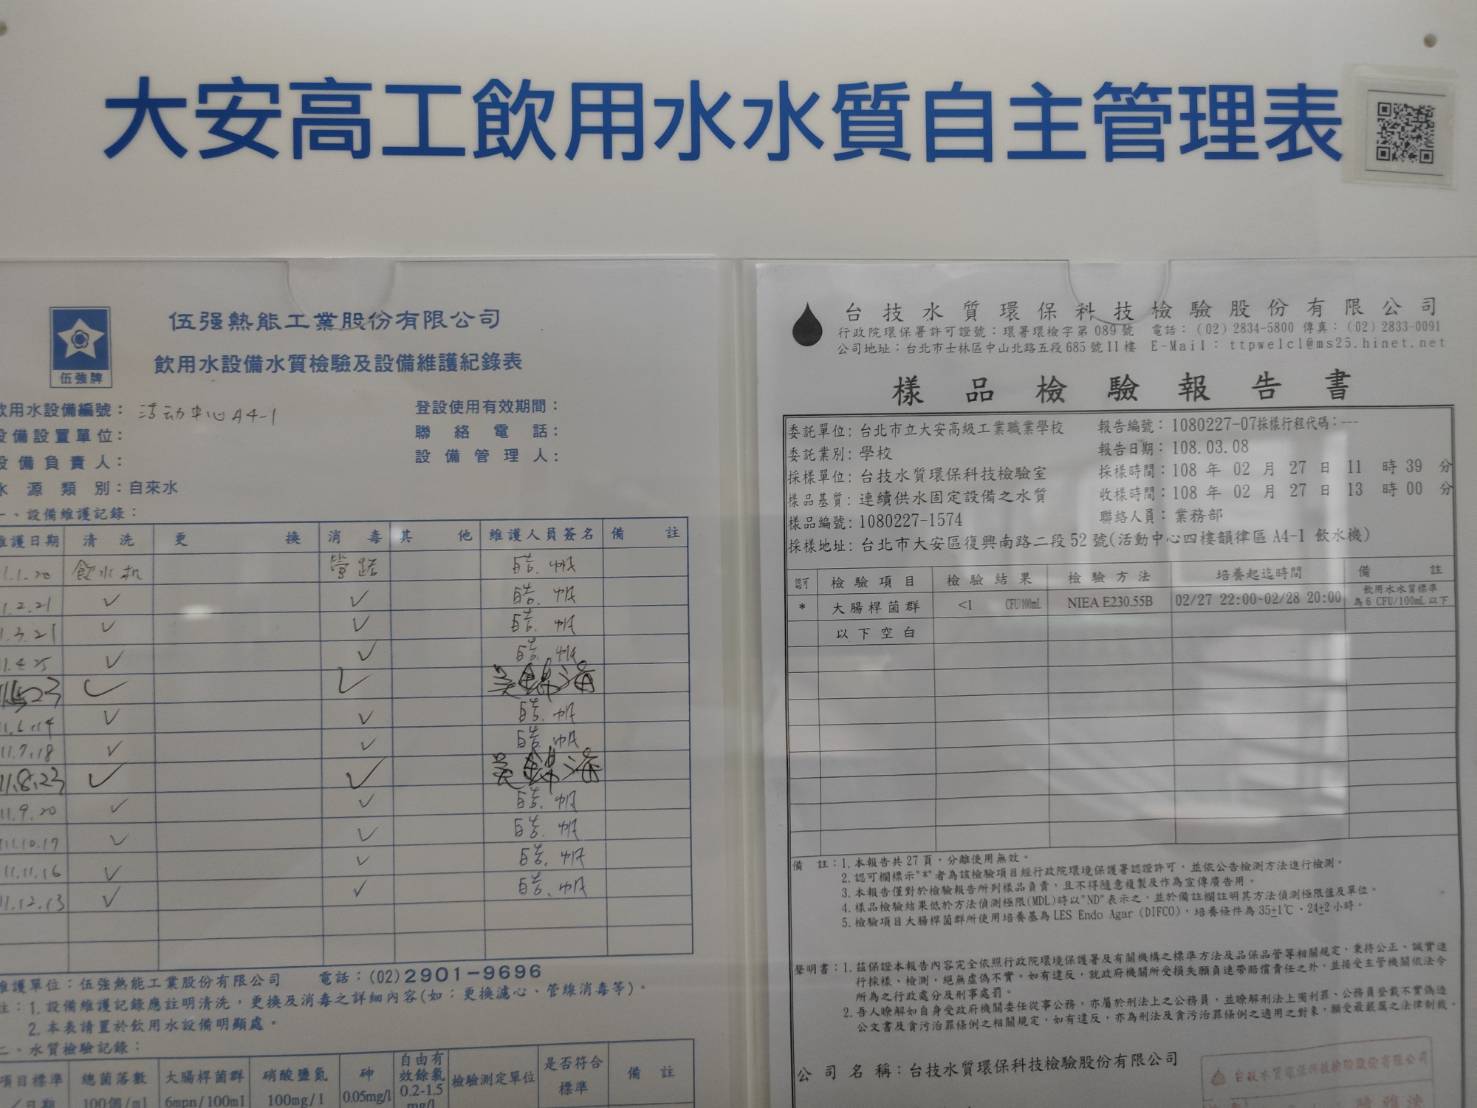 大安高工飲用水水質自主管理表
伍強熱能工業股份有限公司
飲用水設備水質檢驗及設備維護紀錄表
伍強牌
飲用水設備編號：活动中心A4-1
登設使用有效期間：
設備設置單位：
聯絡電話：
設備負責人：
設備管理人：
水源類別：自來水
一、設備維護記錄：
維護日期 清洗 更換 消毒 其他 維護人員簽名 備註
1.1.20 飲水机 管路
1.2.21 ✓ ✓
1.3.21 ✓ ✓
11.4.25 ✓ ✓
✓ ✓
11.6.14 ✓ ✓
11.7.18 ✓ ✓
11.8.23 ✓ ✓
11.9.20 ✓ ✓
11.10.17 ✓ ✓
11.11.16 ✓ ✓
11.12.13 ✓ ✓
維護單位：伍強熱能工業股份有限公司 電話：(02)2901-9696
註：1.設備維護記錄應註明清洗，更換及消毒之詳細內容(如：更換濾心、管線消毒等)。
2.本表請置於飲用水設備明顯處。
二、水質檢驗記錄：
項目標準 總菌落數 大腸桿菌群 硝酸鹽氮 砷 自由有效餘氯 檢驗測定單位 是否符合標準 備註
／日期 100個/ml 6mpn/100ml 100mg/l 0.05mg/l 0.2-1.5 mg/l
台技水質環保科技檢驗股份有限公司
行政院環保署許可證號：環署環檢字第089號 電話：(02)2834-5800 傳真：(02)2833-0091
公司地址：台北市士林區中山北路五段685號11樓 E-Mail：ttpwelcl@ms25.hinet.net
樣品檢驗報告書
委託單位：台北市立大安高級工業職業學校 報告編號：1080227-07採樣行程代碼：---
委託業別：學校 報告日期：108.03.08
採樣單位：台技水質環保科技檢驗室 採樣時間：108年02月27日11時39分
樣品基質：連續供水固定設備之水質 收樣時間：108年02月27日13時00分
樣品編號：1080227-1574 聯絡人員：業務部
採樣地址：台北市大安區復興南路二段52號(活動中心四樓韻律區A4-1 飲水機)
認可 檢驗項目 檢驗結果 檢驗方法 培養起迄時間 備註
* 大腸桿菌群 <1 CFU/100mL NIEA E230.55B 02/27 22:00-02/28 20:00 飲用水水質標準為6 CFU/100mL以下
以下空白
備註：1.本報告共27頁，分離使用無效。
2.認可欄標示"*"者為該檢驗項目經行政院環境保護署認證許可，並依公告檢測方法進行檢測。
3.本報告僅對於檢驗報告所列樣品負責，且不得隨意複製及作為宣傳廣告用。
4.樣品檢驗結果低於方法偵測極限(MDL)時以"ND"表示之，並於備註欄註明其方法偵測極限值及單位。
5.檢驗項目大腸桿菌群所使用培養基為LES Endo Agar (DIFCO)，培養條件為35±1℃、24±2小時。
聲明書：1.茲保證本報告內容完全依照行政院環境保護署及有關機構之標準方法及品保品管等相關規定，秉持公正、誠實進
行採樣、檢測，絕無虛偽不實，如有違反，就政府機關所受損失願負連帶賠償責任之外，並接受主管機關依法令
所為之行政處分及刑事處罰。
2.吾人瞭解如自身受政府機關委任從事公務，亦屬於刑法上之公務員，並瞭解刑法上圖利罪、公務員登載不實偽造
公文書及貪污治罪條例之相關規定，如有違反，亦為刑法及貪污治罪條例之適用之對象，願受最嚴厲之法律制裁。
公司名稱：台技水質環保科技檢驗股份有限公司
台技水質環保科技檢驗股份有限公司